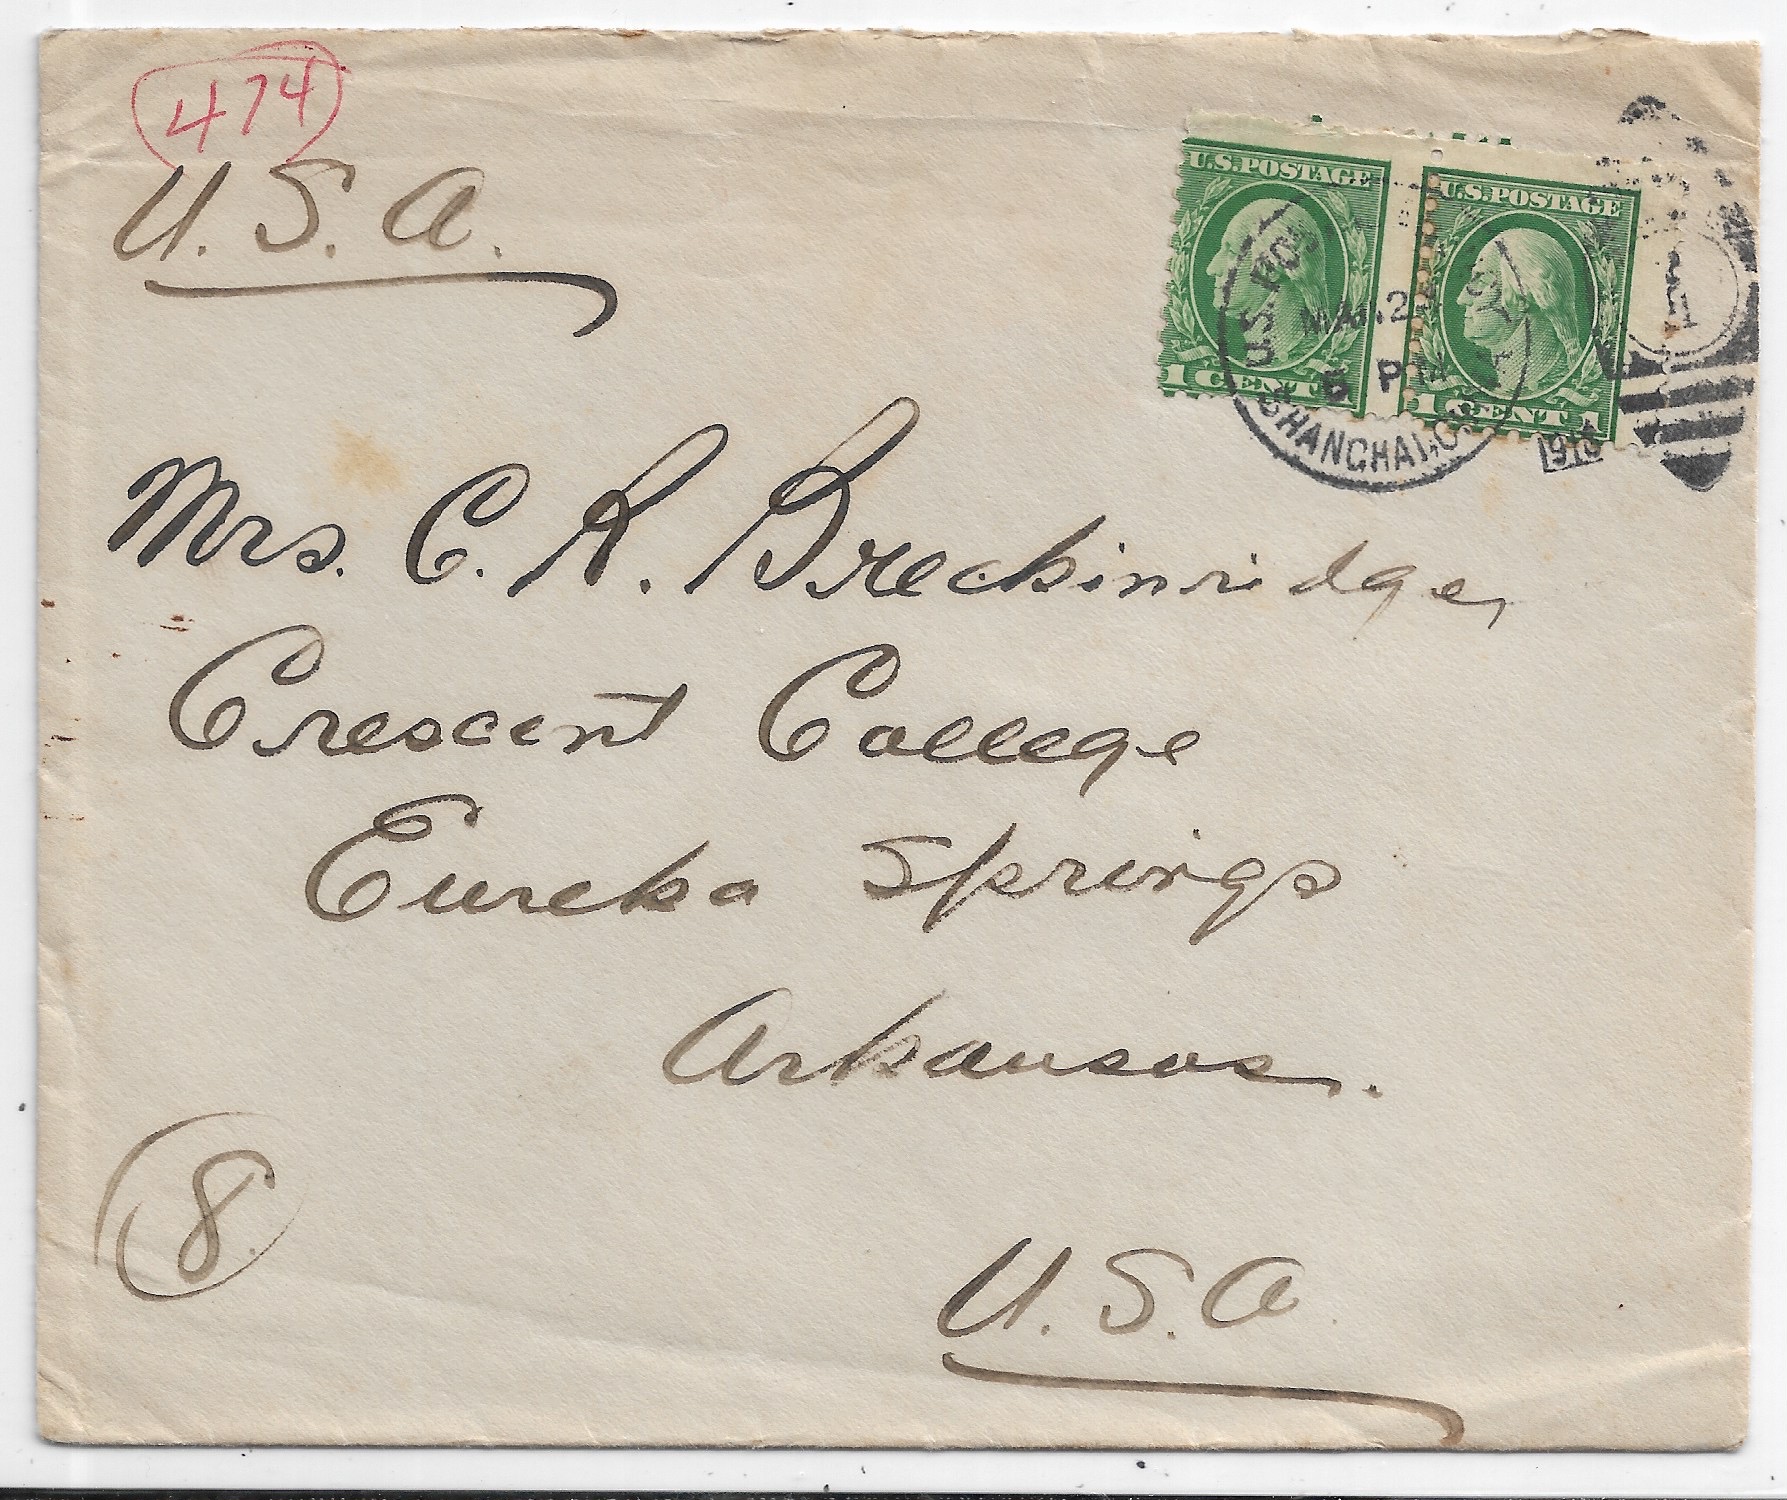 474
U.S.A.
U.S. POSTAGE
1 CENT 1
U.S. POSTAGE
1 CENT 1
U.S. POS
MAR. 2
5 PM
SHANGHAI,
1
Mrs. C. R. Breckinridge,
Crescent College
Eureka Springs
Arkansas.
8
U.S.A.